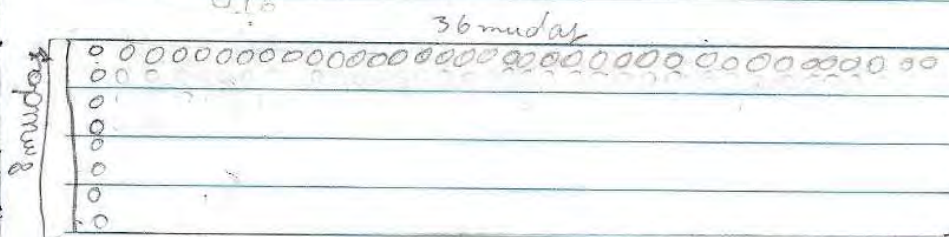 36 mudas
8 mudas